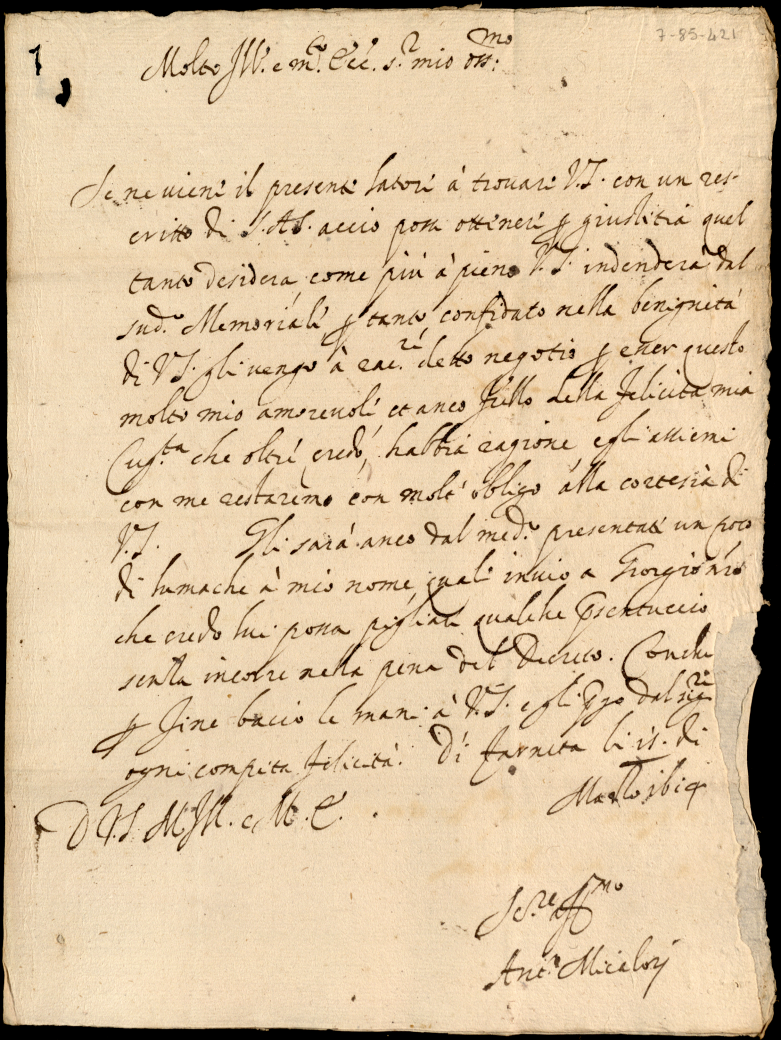 7-85-421
1
Molto Ill. e m.to Ecc. s.r mio oss.mo
Se ne viene il presente latore à trovare V.S. con un res-
critto di S. Al. acciò possa ottenere p giustitia quel
tanto desidera, come più à pieno V.S. indenderà dal
sud.o Memoriale p tanto, confidato nella benignità
di V.S. gli vengo à rac.re detto negotio p esser questo
molto mio amorevole et anco fillo della Felicita mia
che oltre credo, habbia ragione, egli assieme
con me restaremo con molt' obligo alla cortesia di
V.S. Gli sarà anco dal med.o presentate un poco
di lumache à mio nome, quale invio a Giorgio n.ro
che credo lui possa pigliare qualche psentuccio
senza incorre nella pena del Decreto. Con che
p fine bacio le mani à V.S. e gli pgo dal Sig.re
ogni compita felicità. Di Farneta li 15. di
Marzo 1619
D V.S. M. Ill. e M. E.
Se.re aff.mo
Ant.o Micalori